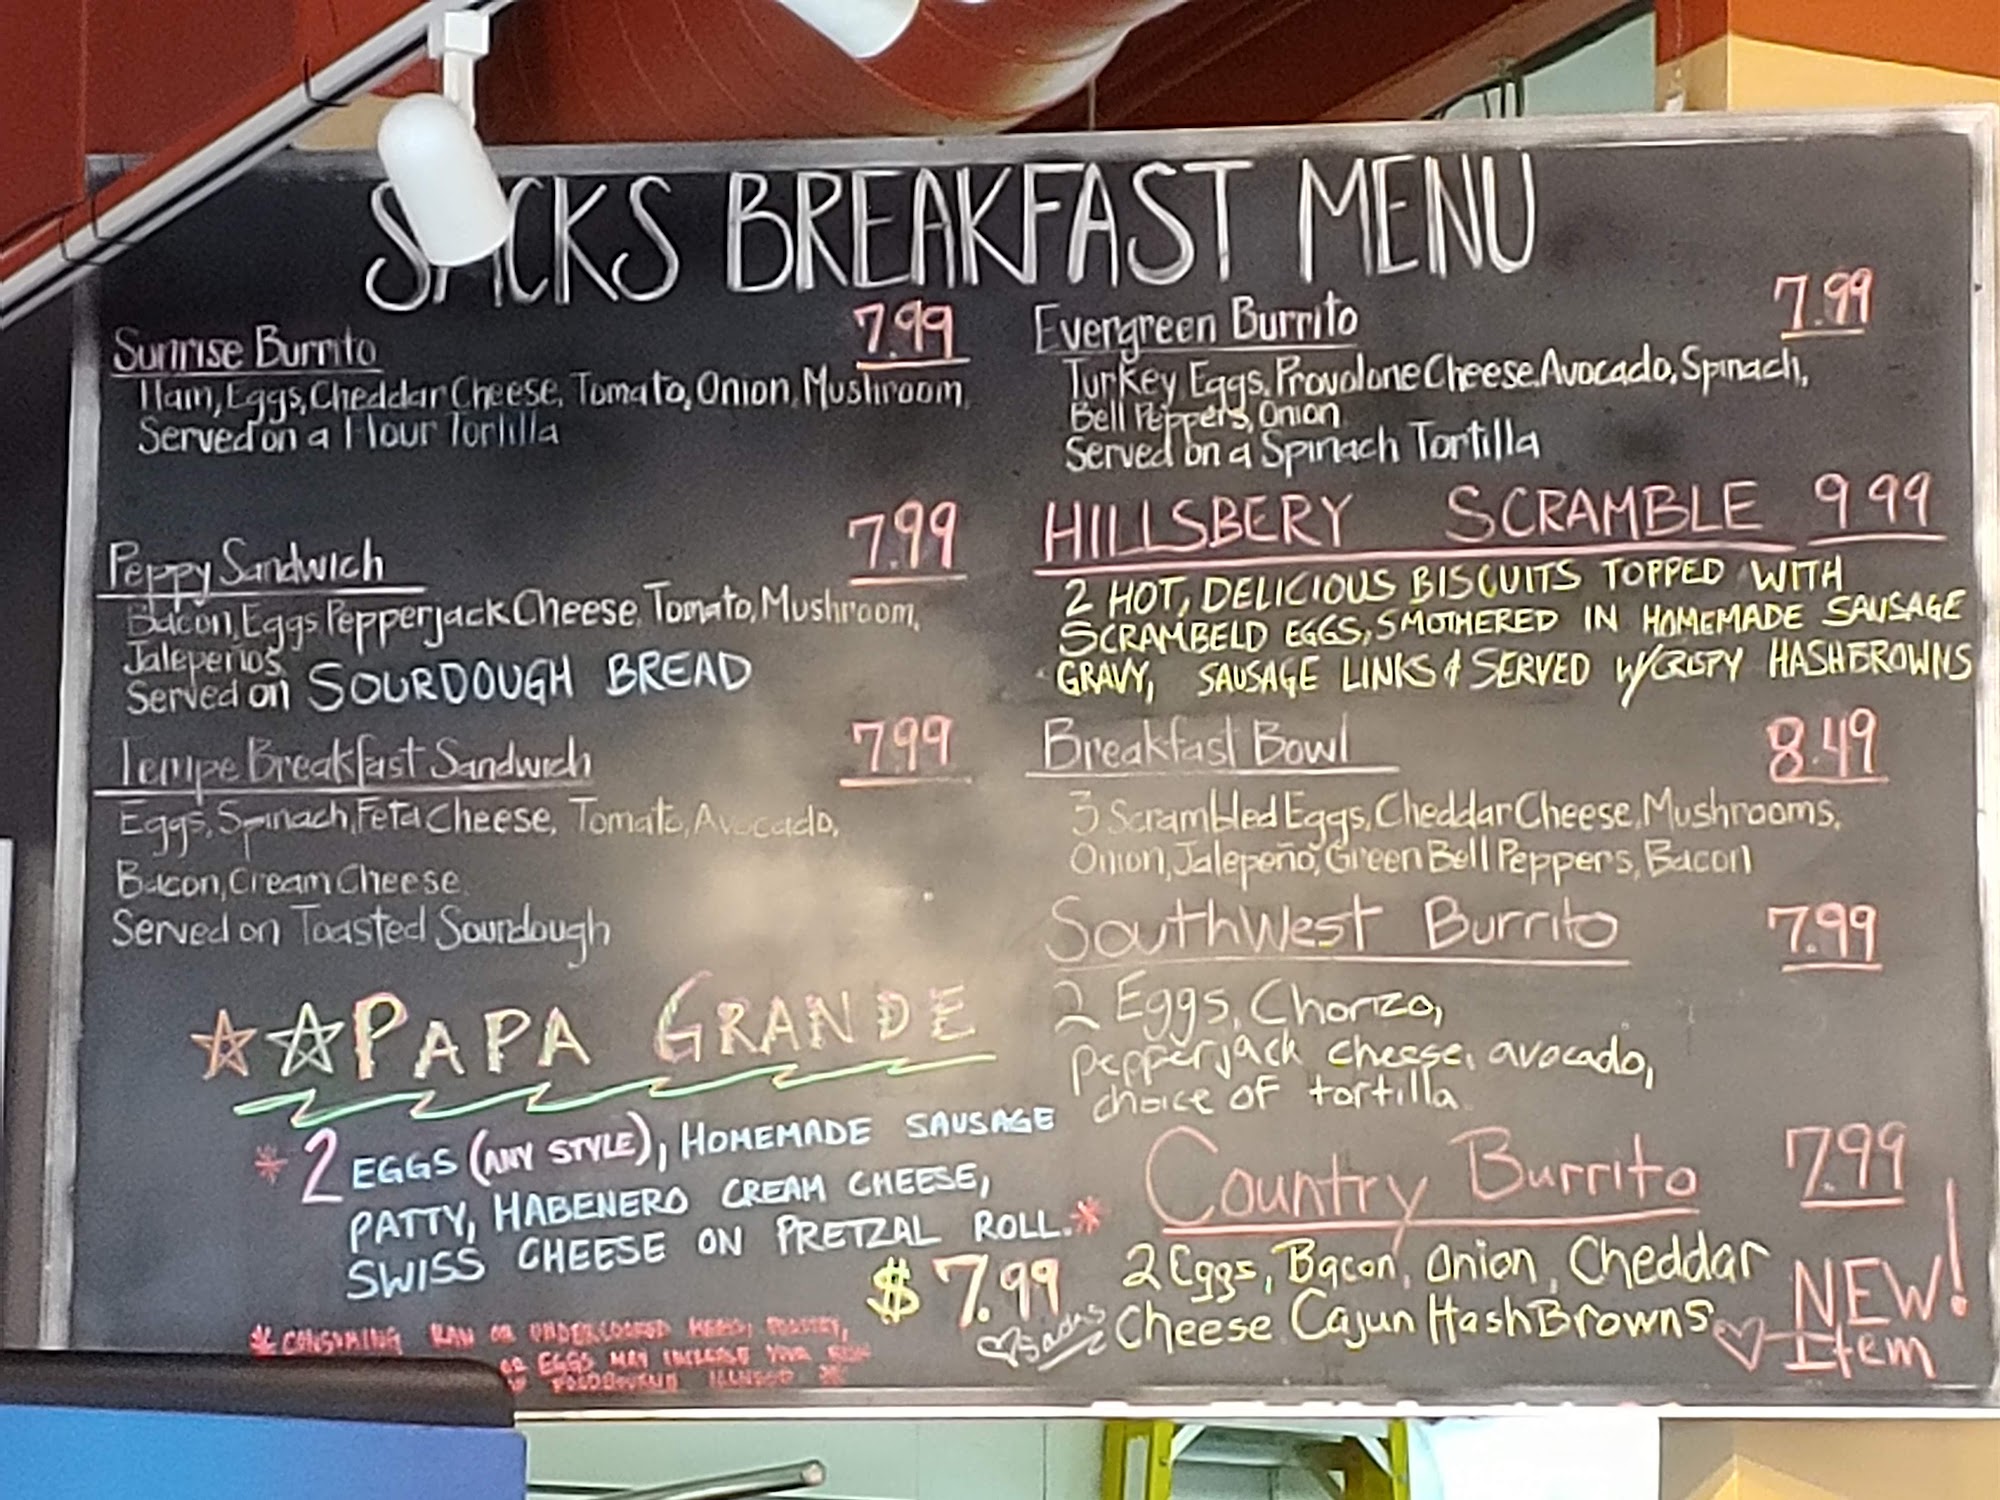 SACKS BREAKFAST MENU
Sunrise Burrito 7.99
Ham, Eggs, Cheddar Cheese, Tomato, Onion, Mushroom,
Served on a Flour Tortilla
Peppy Sandwich 7.99
Bacon, Eggs, Pepperjack Cheese, Tomato, Mushroom,
Jalepeños,
Served on SOURDOUGH BREAD
Tempe Breakfast Sandwich 7.99
Eggs, Spinach, Feta Cheese, Tomato, Avocado,
Bacon, Cream Cheese
Served on Toasted Sourdough
PAPA GRANDE
* 2 EGGS (ANY STYLE), HOMEMADE SAUSAGE
PATTY, HABENERO CREAM CHEESE,
SWISS CHEESE ON PRETZAL ROLL. *
$ 7.99
* CONSUMING RAW OR UNDERCOOKED MEATS, POULTRY,
OR EGGS MAY INCREASE YOUR RISK
OF FOODBOURNE ILLNESS *
Evergreen Burrito 7.99
Turkey, Eggs, Provolone Cheese, Avocado, Spinach,
Bell Peppers, Onion
Served on a Spinach Tortilla
HILLSBERY SCRAMBLE 9.99
2 HOT, DELICIOUS BISCUITS TOPPED WITH
SCRAMBELD EGGS, SMOTHERED IN HOMEMADE SAUSAGE
GRAVY, SAUSAGE LINKS & SERVED W/CRISPY HASHBROWNS
Breakfast Bowl 8.49
3 Scrambled Eggs, Cheddar Cheese, Mushrooms,
Onion, Jalepeño, Green Bell Peppers, Bacon
SouthWest Burrito 7.99
2 Eggs, Chorizo,
pepperjack cheese, avocado,
choice of tortilla.
Country Burrito 7.99
2 Eggs, Bacon, Onion, Cheddar
Cheese Cajun HashBrowns
NEW!
Item